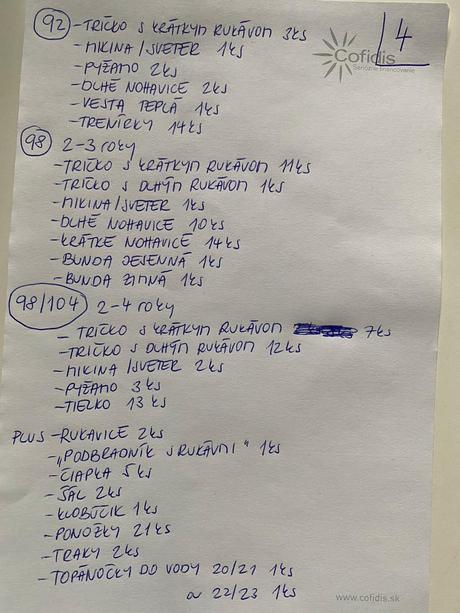 92 - TRIČKO S KRÁTKYM RUKÁVOM 3KS
- MIKINA/SVETER 1KS
- PYŽAMO 2KS
- DLHÉ NOHAVICE 2KS
- VESTA TEPLÁ 1KS
- TRENÍRKY 14KS
4
Cofidis
Seriózne financovanie
98 2-3 roky
- TRIČKO S KRÁTKYM RUKÁVOM 11KS
- TRIČKO S DLHÝM RUKÁVOM 1KS
- MIKINA/SVETER 1KS
- DLHÉ NOHAVICE 10KS
- KRÁTKE NOHAVICE 14KS
- BUNDA JESENNÁ 1KS
- BUNDA ZIMNÁ 1KS
98/104 2-4 roky
- TRIČKO S KRÁTKYM RUKÁVOM 7KS
- TRIČKO S DLHÝM RUKÁVOM 12KS
- MIKINA/SVETER 2KS
- PYŽAMO 3KS
- TIELKO 13KS
PLUS - RUKAVICE 2KS
- „PODBRADNÍK S RUKÁVMI" 1KS
- ČIAPKA 5KS
- ŠÁL 2KS
- KLOBÚČIK 1KS
- PONOŽKY 21KS
- TRAKY 2KS
- TOPÁNOČKY DO VODY 20/21 1KS
a 22/23 1KS
www.cofidis.sk